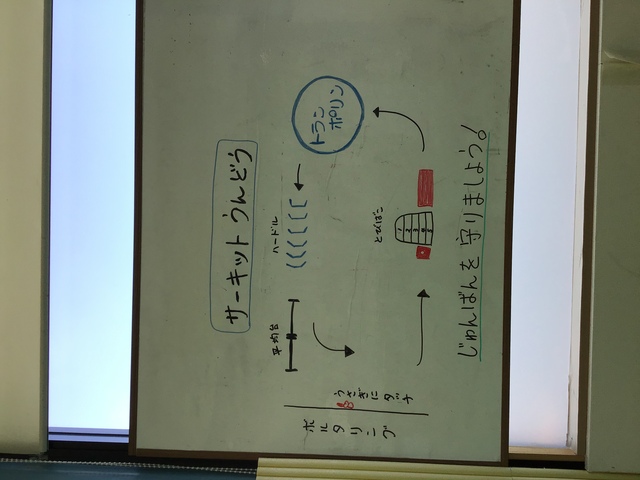 サーキットうんどう
ハードル
平均台
トラン
ポリン
とびばこ
1
2
3
うさぎにタッチ
ボルタリング
じゅんばんを守りましょう!